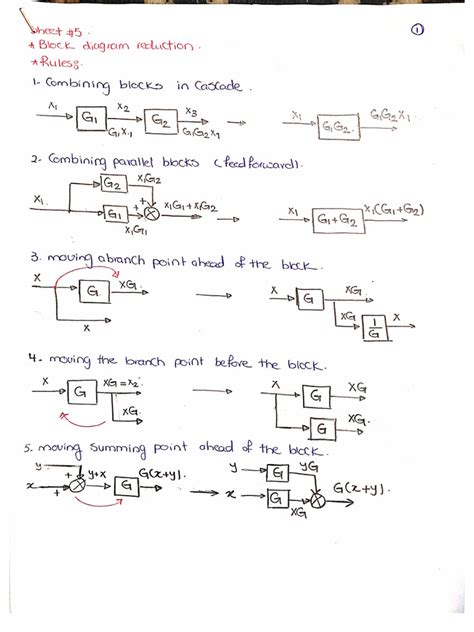 Sheet #5.
①
* Block diagram reduction.
* Rules:
1- Combining blocks in Cascade.
X₁ G₁ X₂ G₂ X₃ X₁ G₁G₂ G₁G₂X₁
G₁X₁ G₁G₂X₁
2- Combining parallel blocks (feedforward).
G₂ X₁G₂
X₁ G₁ + + X₁G₁+X₁G₂ X₁ G₁+G₂ X₁(G₁+G₂)
X₁G₁
3. moving a branch point ahead of the block.
X G XG X G XG
X XG 1/G X
4- moving the branch point before the block.
X G XG=X₂ X G XG
XG G XG
5. moving Summing point ahead of the block.
y + y+x G(x+y). y G yG
x + G x G G(x+y)
XG